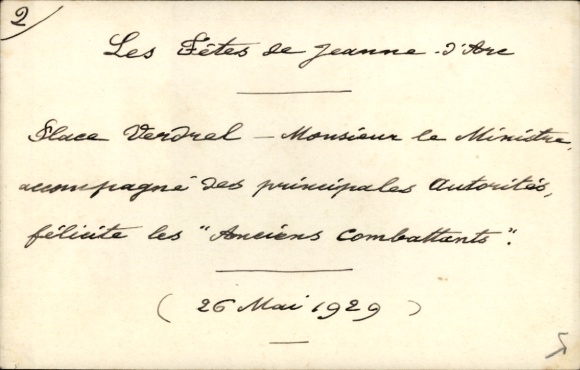 2
Les Fêtes de Jeanne-d'Arc
Place Verdrel — Monsieur le Ministre,
accompagné des principales Autorités,
félicite les "Anciens Combattants".
( 26 Mai 1929 )